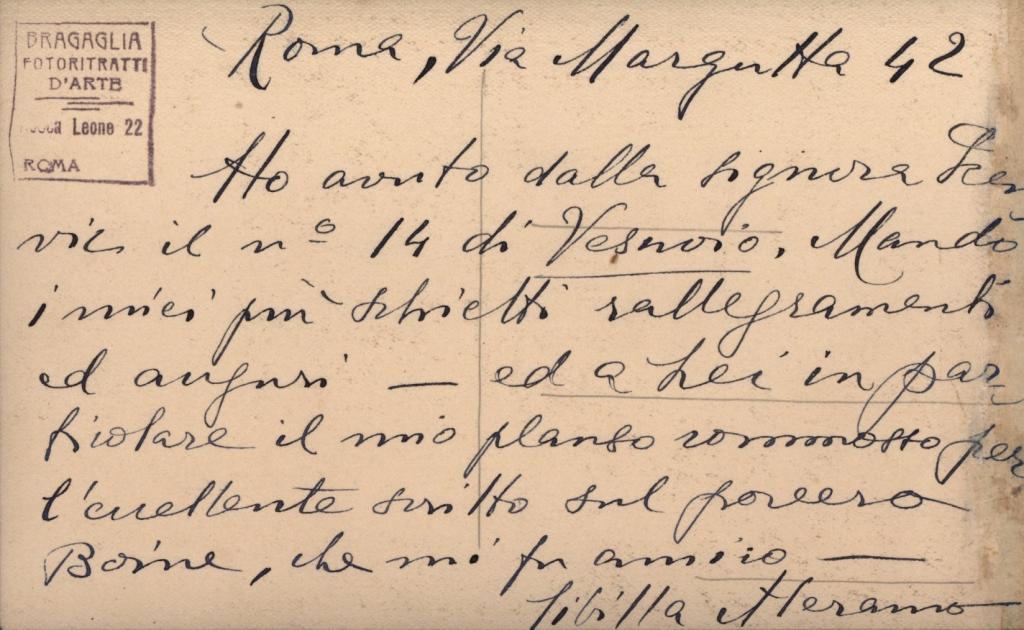 BRAGAGLIA
FOTORITRATTI
D'ARTE
Leone 22
ROMA
Roma, Via Margutta 42
Ho avuto dalla signora
il nº 14 di Vesuvio. Mando
i miei più schietti rallegramenti
ed auguri — ed a Lei in par-
ticolare il mio plauso commosso per
l'eccellente scritto sul povero
Boine, che mi fu amico —
Sibilla Aleramo